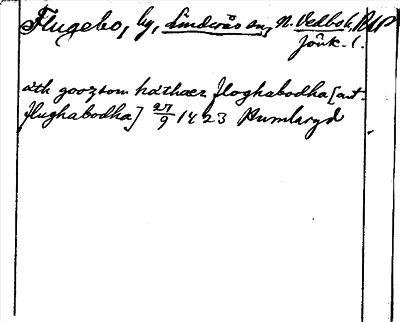 Flugebo, by, Linderås sn, N. Vedbo h, RAP
Jönk. l.
ath gooztom hathaer floghabodha [aut.
flughabodha] 27/9 1423 Rumlaryd